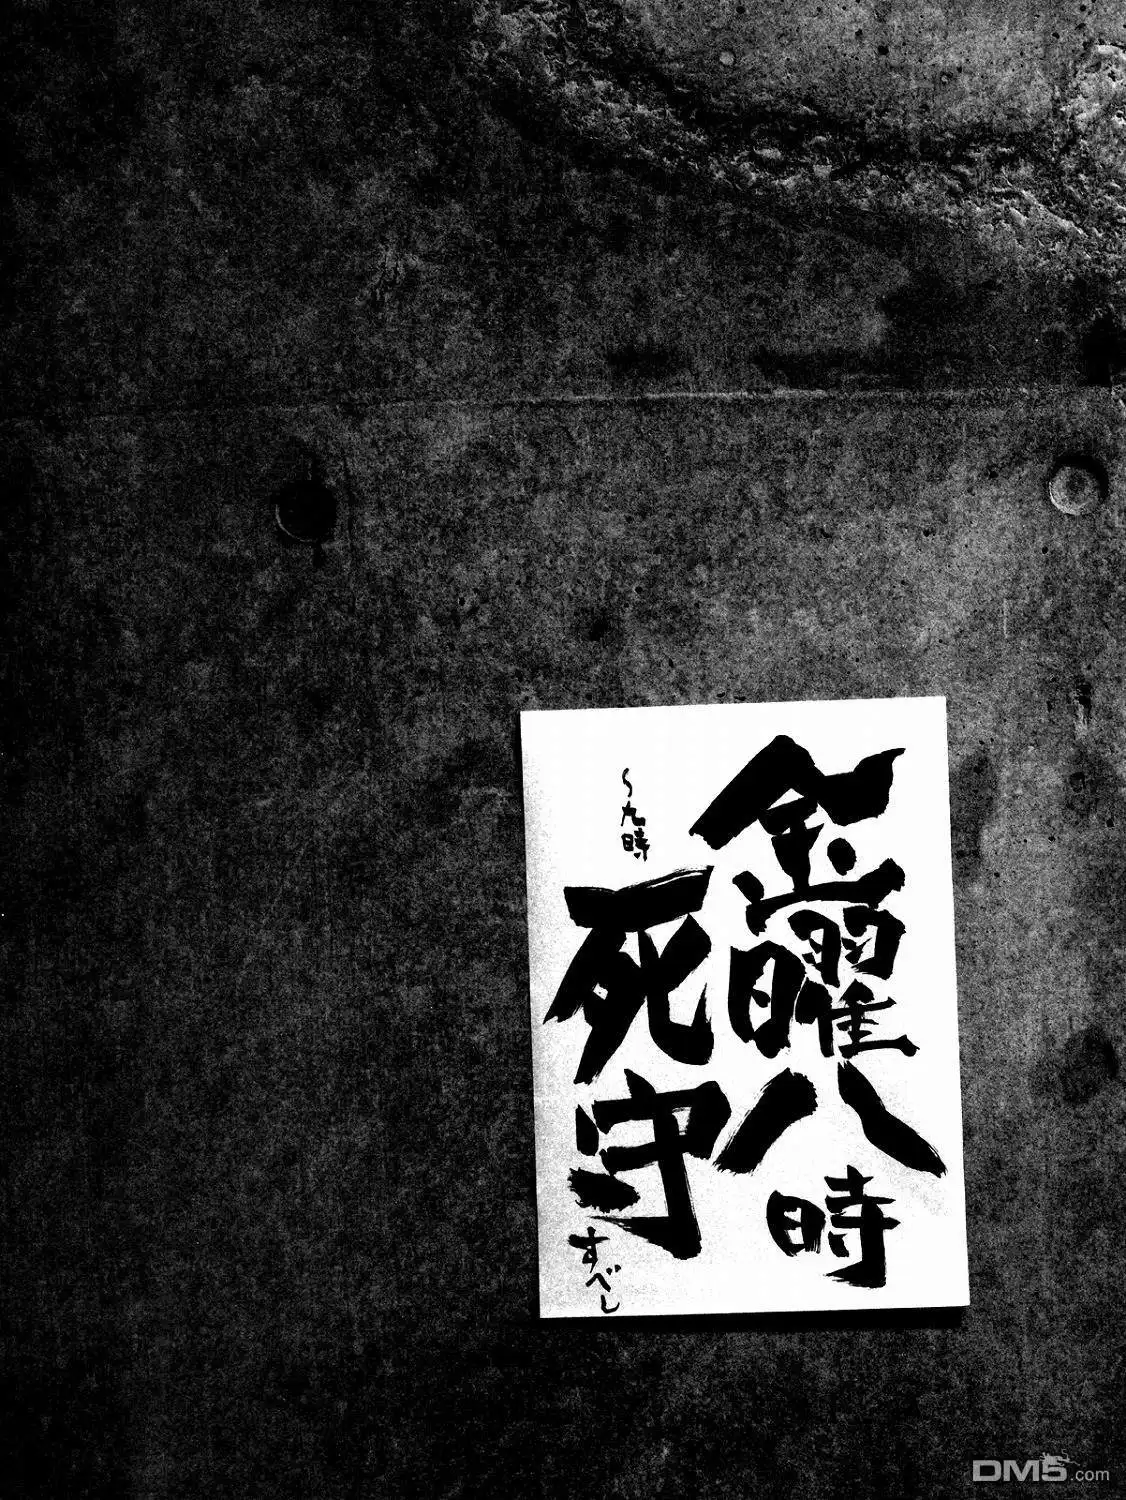 金曜八時
〜九時
死守
すべし
DM5.com